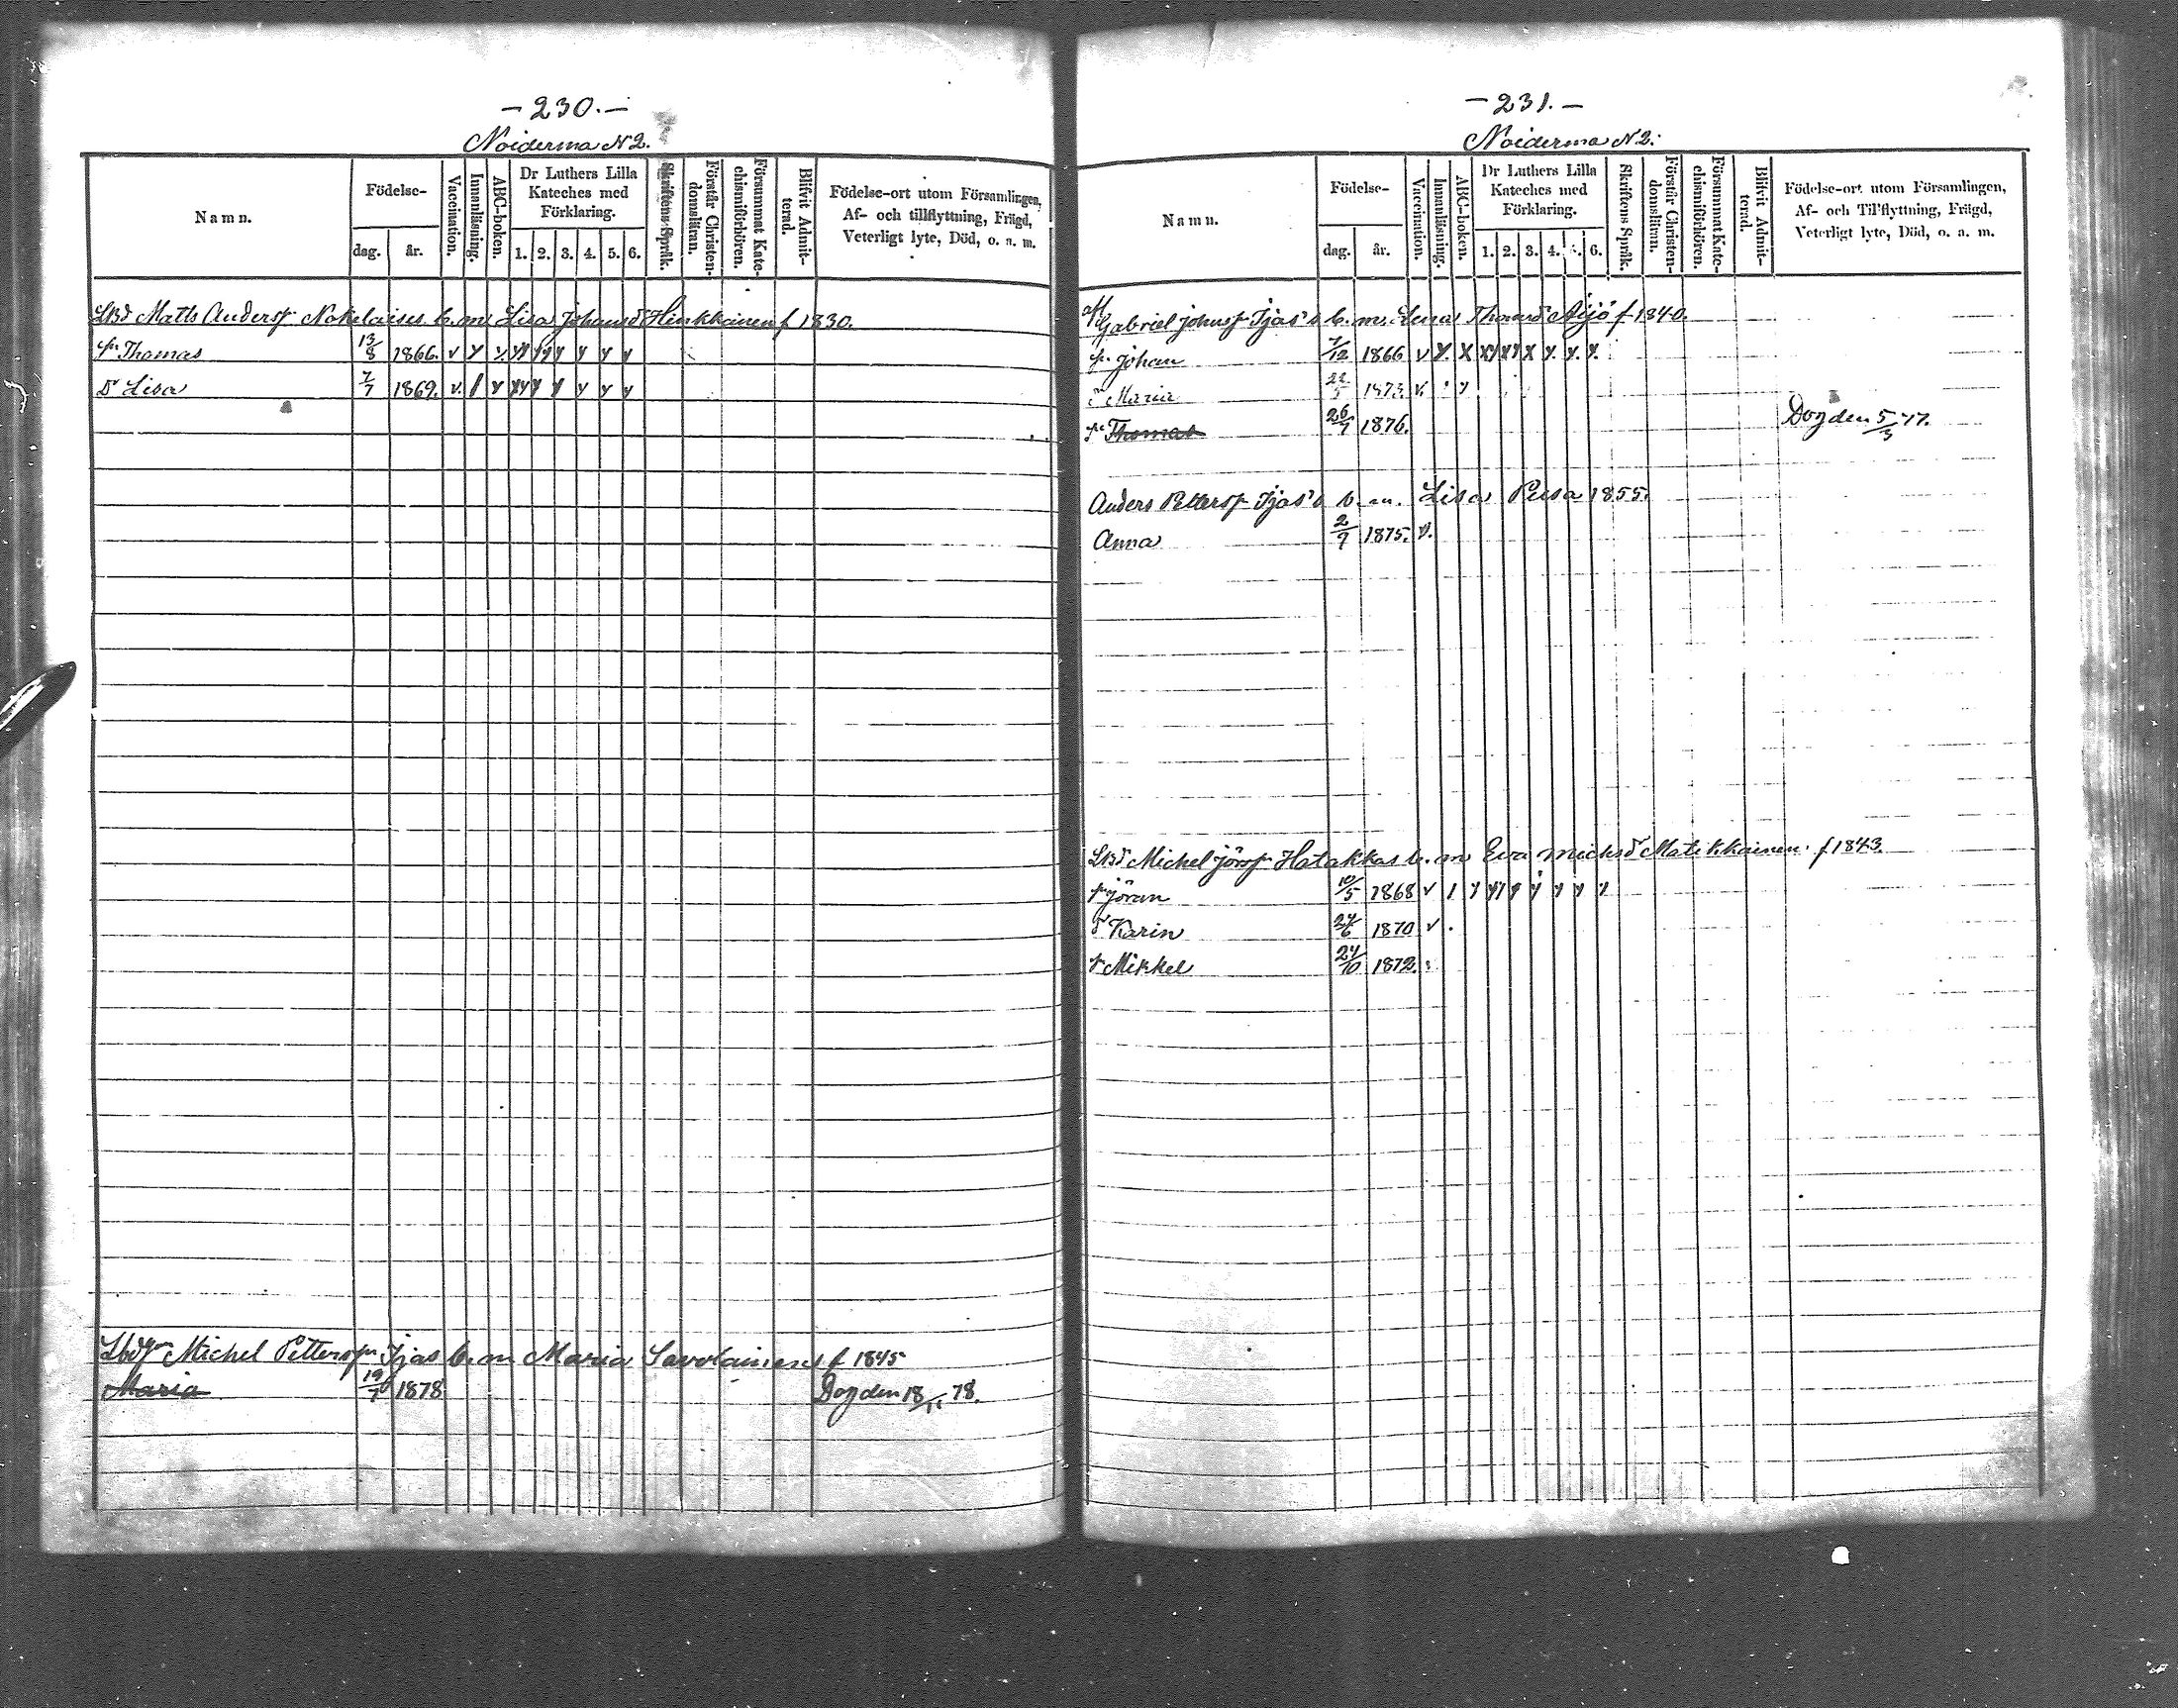 - 230. -
Noiderma N 2.
Namn.
Födelse-
dag.
år.
Vaccination.
Innanläsning.
ABC-boken.
Dr Luthers Lilla Kateches med Förklaring.
1. 2. 3. 4. 5. 6.
Skriftens Språk.
Förstår Christendomsläran.
Försummat Katechismiförhören.
Blifvit Admitterad.
Födelse-ort utom Församlingen,
Af- och tillflyttning, Frägd,
Veterligt lyte, Död, o. s. m.
Matts Andersp Nokelaises b. m. Lisa Johansd Hinkkainen f 1830.
Thomas 13/8 1866. v
Lisa 7/7 1869. v.
Michel Pettersp Ijas b. m Maria Savolainen f 1845
Maria 19/7 1878 Dog den 18/11 78.
- 231. -
Noiderma N 2.
Namn.
Födelse-
dag.
år.
Vaccination.
Innanläsning.
ABC-boken.
Dr Luthers Lilla Kateches med Förklaring.
1. 2. 3. 4. 6.
Skriftens Språk.
Förstår Christendomsläran.
Försummat Katechismiförhören.
Blifvit Admitterad.
Födelse-ort utom Församlingen,
Af- och Tillflyttning, Frägd,
Veterligt lyte, Död, o. s. m.
Gabriel Johansp Ijas's b. m. Lena Thomasd Äijö f 1840.
Johan 7/12 1866 v
Maria 22/5 1873 v.
Thomas 26/7 1876. Dog den 5/3 77.
Anders Pettersp Ijas's b. m. Lisa Pusa 1855.
Anna 2/7 1875. v.
Michel Jörsp Hatakkas b. m Eva Michsd Matikkainen f 1843.
Jöran 10/5 1868 v
Karin 24/6 1870 v
Mikkel 24/10 1872.